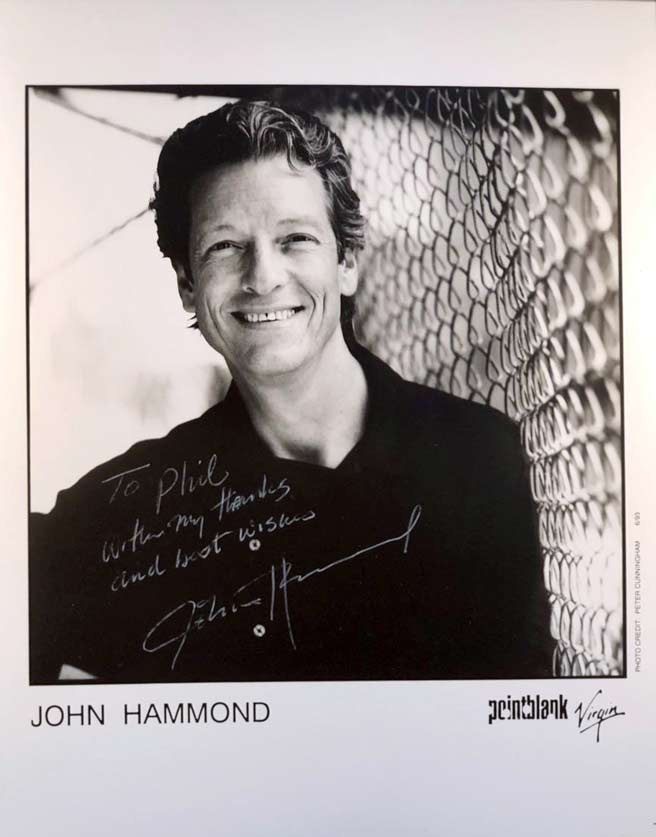 To Phil
with my thanks
and best wishes
John Hammond
PHOTO CREDIT: PETER CUNNINGHAM 6/93
JOHN HAMMOND
pointblank Virgin